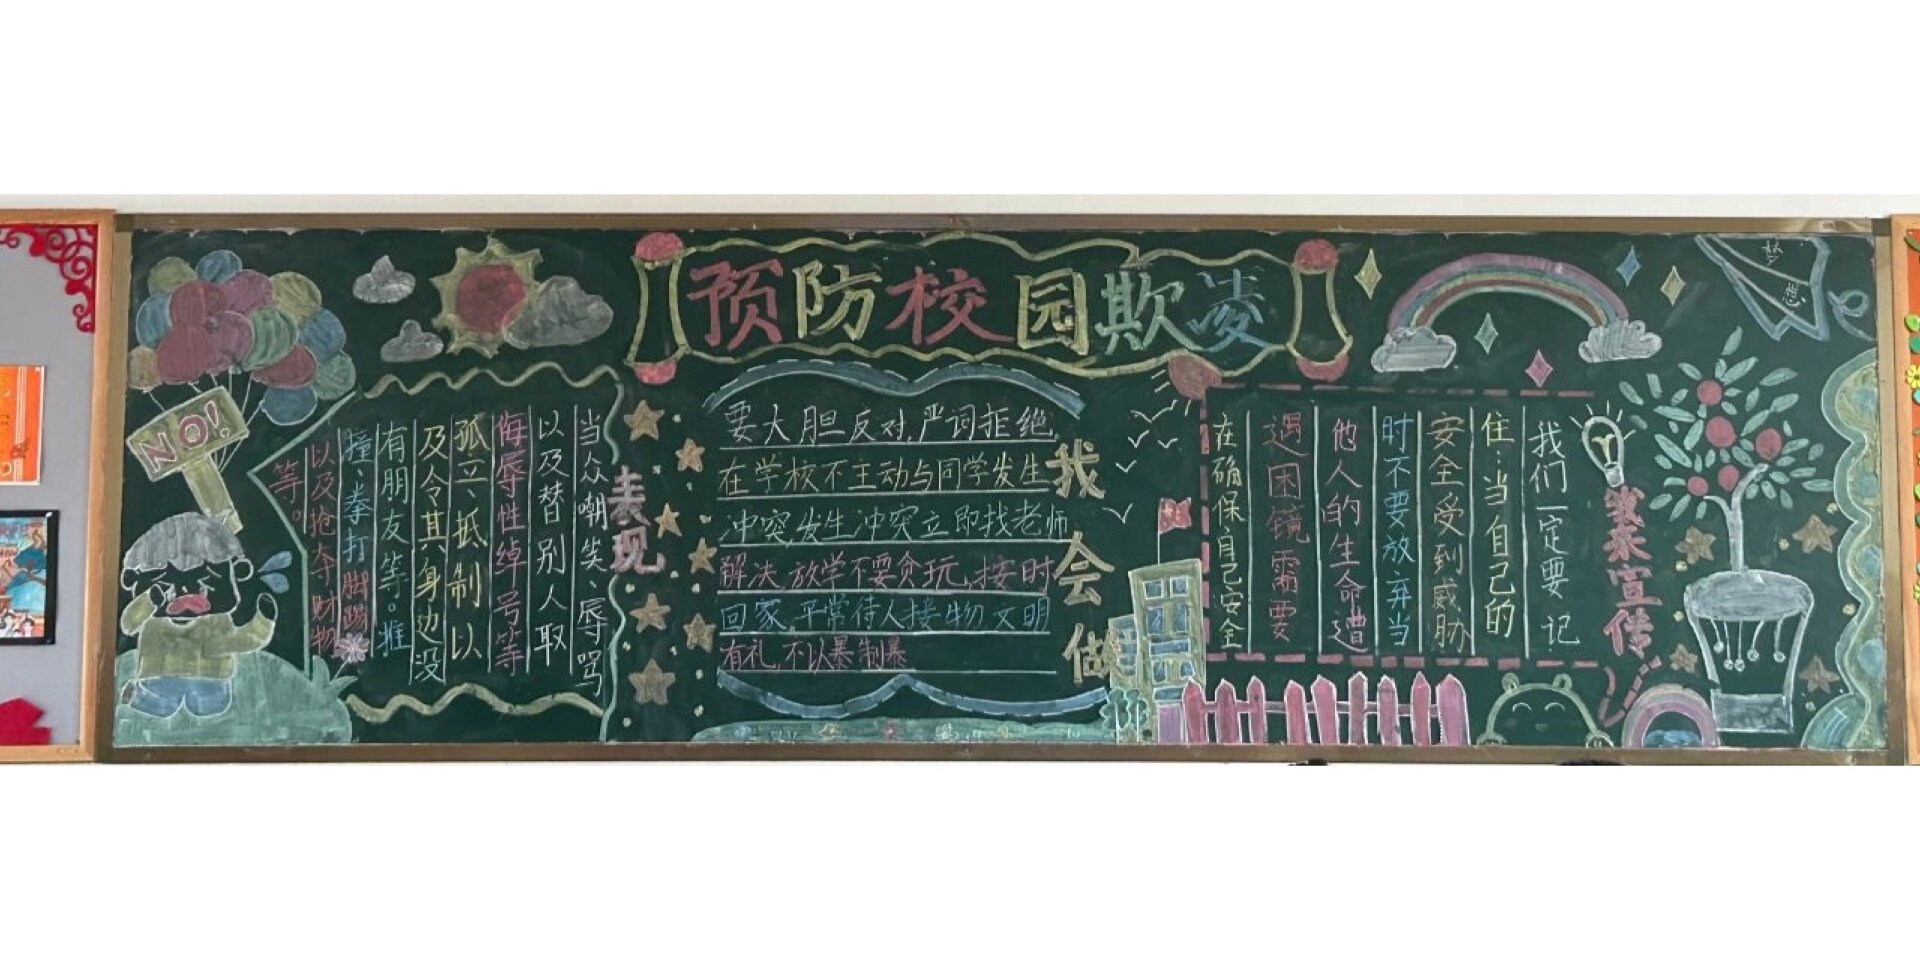 预防校园欺凌
NO!
表现
当众嘲笑、辱骂
以及替别人取
侮辱性绰号等
孤立、抵制以
及令其身边没
有朋友等。推
撞、拳打脚踢
以及抢夺财物
等。
我会做
要大胆反对,严词拒绝,
在学校不主动与同学发生
冲突,发生冲突立即找老师
解决,放学不要贪玩,按时
回家,平常待人接物文明
有礼,不以暴制暴
我来宣传
我们一定要记
住:当自己的
安全受到威胁
时不要放弃当
他人的生命遭
遇困镜需要
在确保自己安全